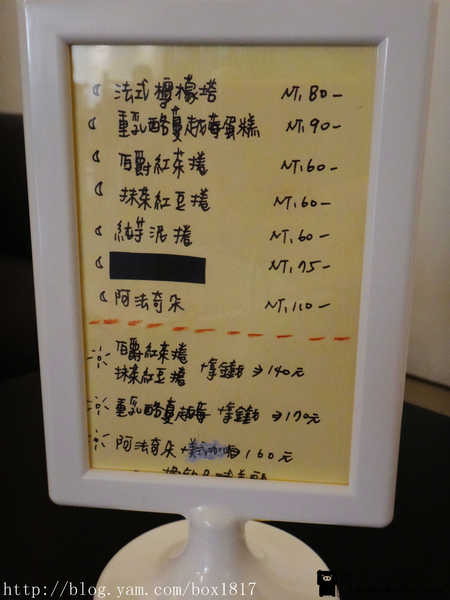 法式檸檬塔 NT.80-
重乳酪蔓越莓蛋糕 NT.90-
伯爵紅茶捲 NT.60-
抹茶紅豆捲 NT.60-
純芋泥捲 NT.60-
NT.75-
阿法奇朵 NT.110-
伯爵紅茶捲
抹茶紅豆捲 +拿鐵 → 140元
重乳酪蔓越莓 +拿鐵 → 170元
阿法奇朵 +美 160元
http://blog.yam.com/box1817